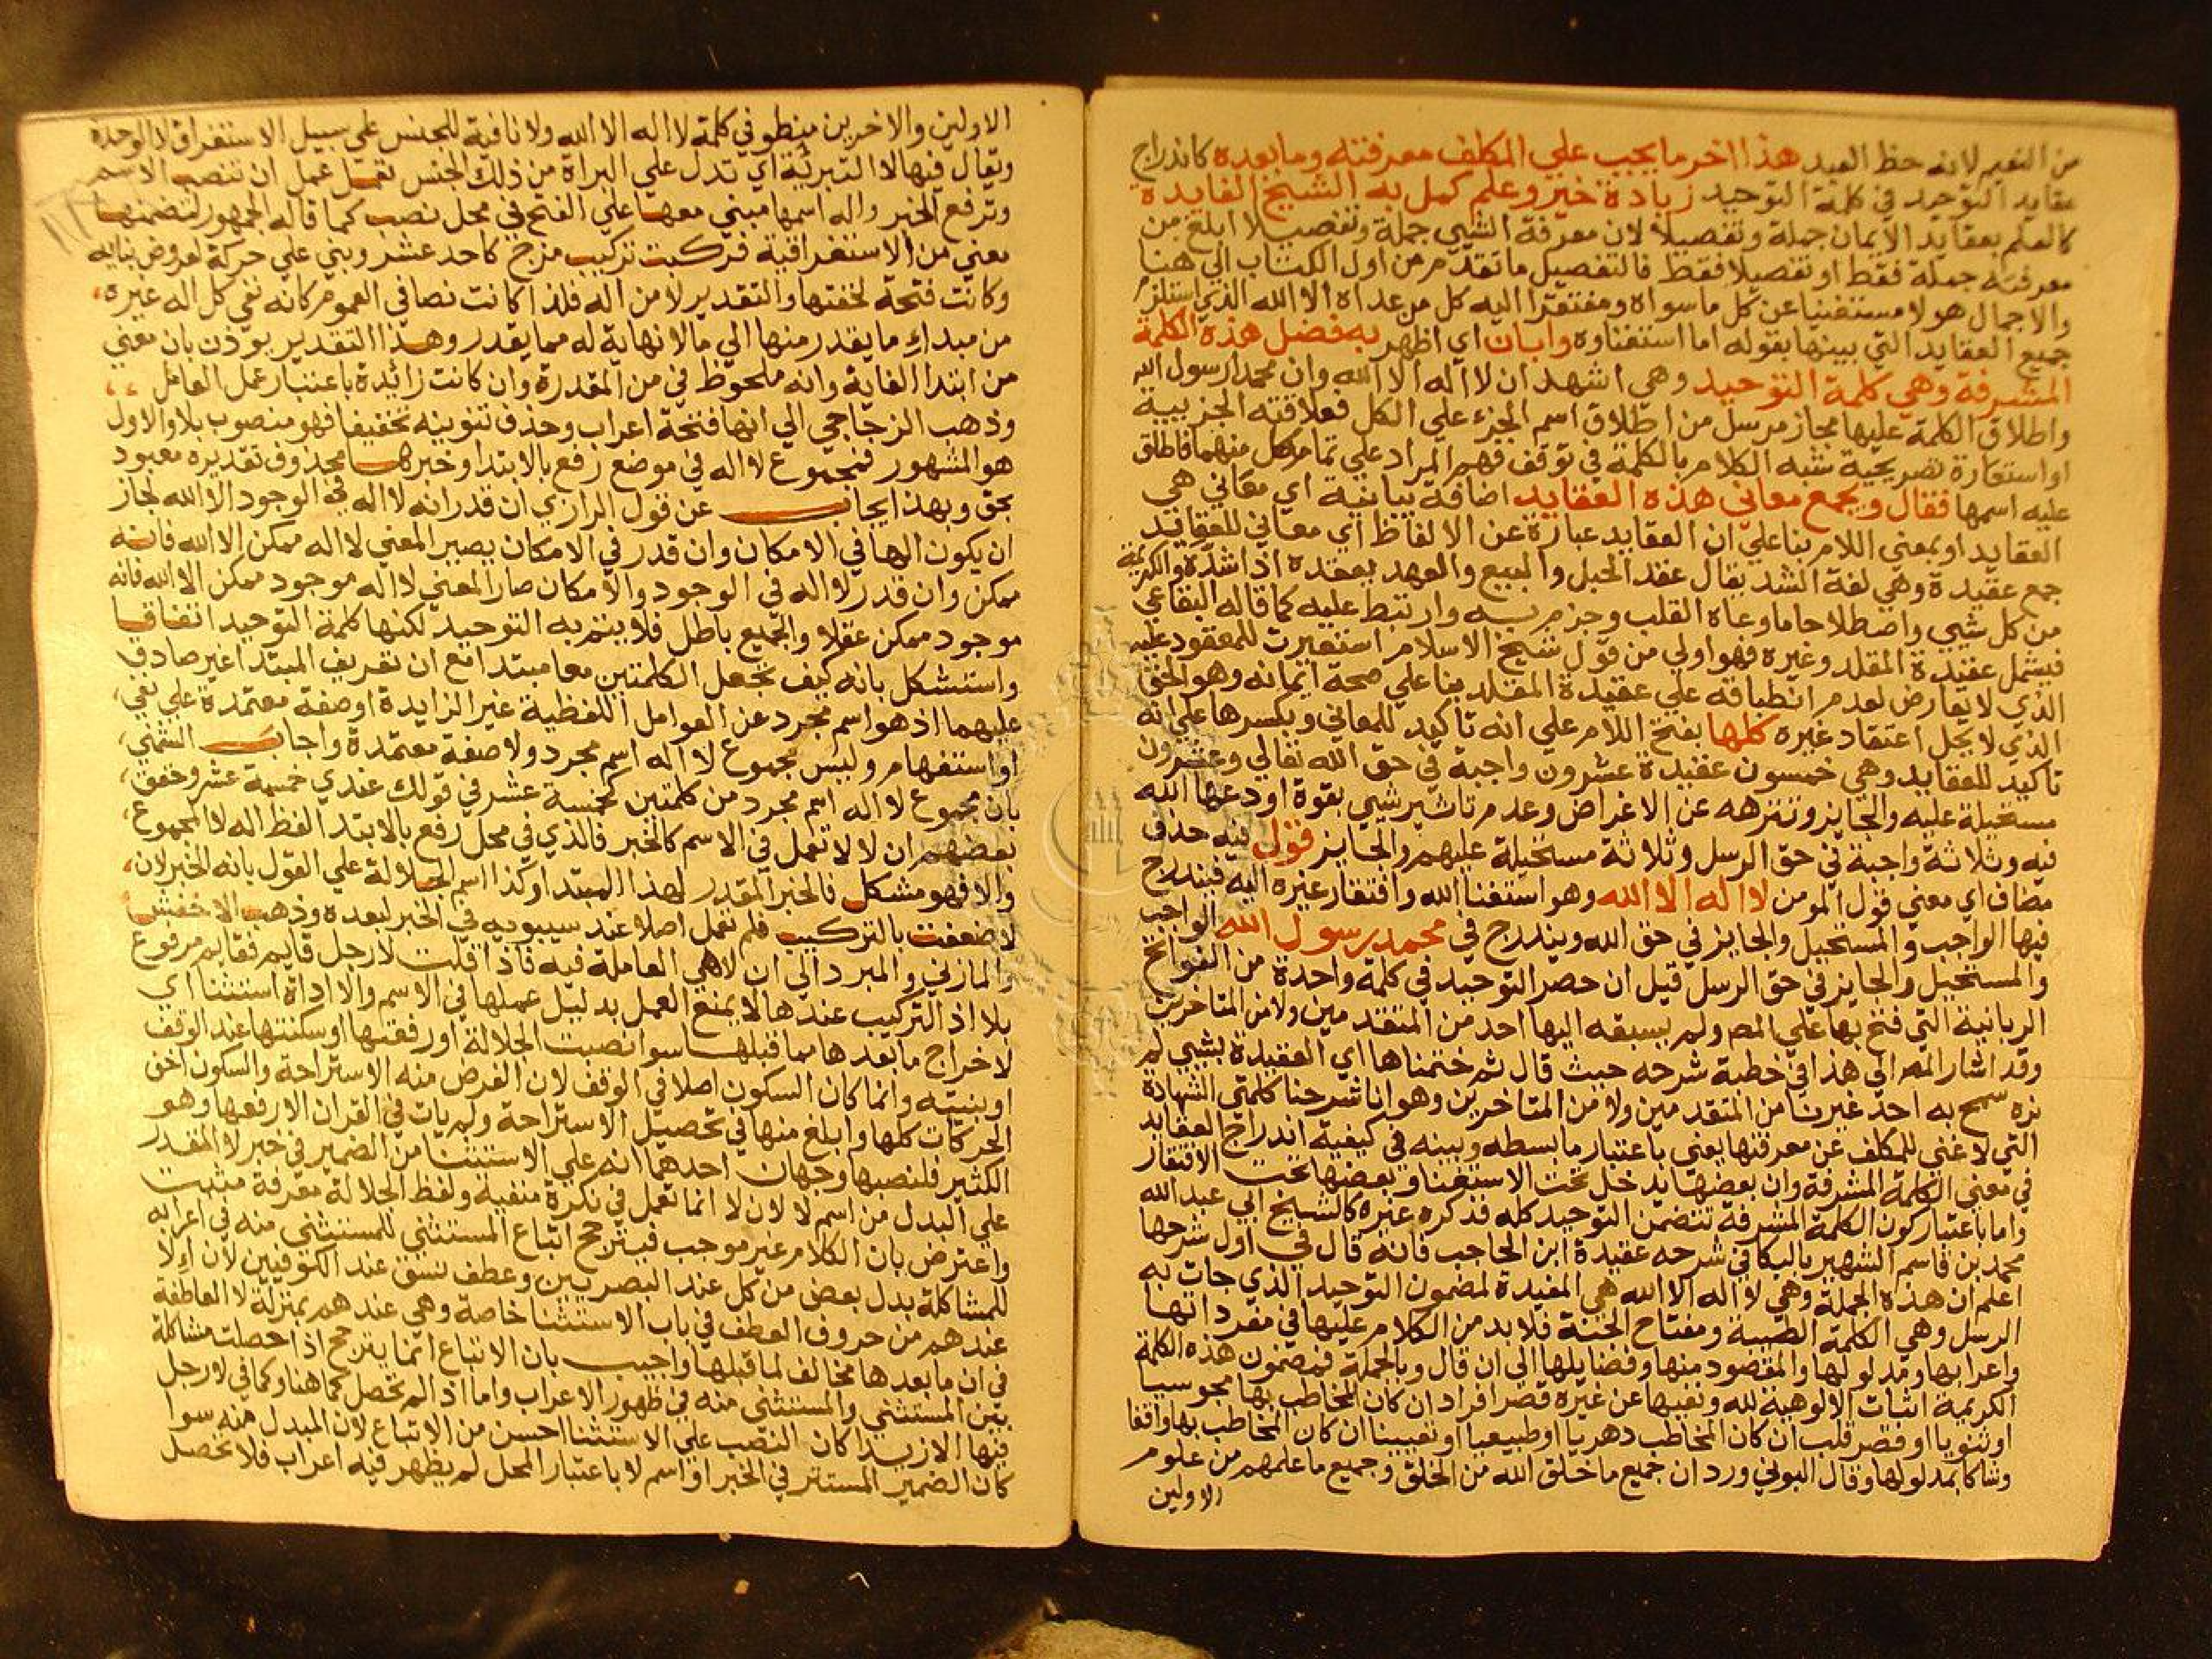 من النعيم لانه حظ العبد هذا اخر ما يجب علي المكلف معرفته وما بعده كاندراج
عقايد التوحيد في كلمة التوحيد زيادة خير وعلم كمل به الشيخ الفايدة
كالعلم بعقايد الايمان جملة وتفصيلا لان معرفة الشي جملة وتفصيلا ابلغ من
معرفته جملة فقط او تفصيلا فقط فالتفصيل ما تقدم من اول الكتاب الي هنا
والاجمال هو لا مستغنيا عن كل ما سواه ومفتقرا اليه كل من عداه الا الله الذي استلزم
جميع العقايد التي بينها بقوله اما استغناوه وابان اي اظهر به فضل هذه الكلمة
المشرفة وهي كلمة التوحيد وهي اشهد ان لا اله الا الله وان محمدا رسول الله
واطلاق الكلمة عليها مجاز مرسل من اطلاق اسم الجزء علي الكل فعلاقته الجزييية
او استعارة تصريحية شبه الكلام بالكلمة في توقف فهم المراد علي تمام كل منهما فاطلق
عليه اسمها فقال ويجمع معاني هذه العقايد اضافة بيانية اي معاني هي
العقايد او بمعني اللام بنا علي ان العقايد عبارة عن الالفاظ اي معاني للعقايد
جمع عقيدة وهي لغة الشد يقال عقد الحبل والبيع والعهد يعقده اذا شده والكريمة
من كل شيي واصطلاحا ما وعاه القلب وجزم به وارتبط عليه كما قاله البقاعي
فيشمل عقيدة المقلد وغيره فهو اولي من قول شيخ الاسلام استعيرت للمعقود عليه
الذي لا يعارض لعدم انطباقه علي عقيدة المقلد بنا علي صحة ايمانه وهو الحق
الذي لا يحل اعتقاد غيره كلها بفتح اللام علي انه تاكيد للمعاني وبكسرها علي انه
تاكيد للعقايد وهي خمسون عقيدة عشرون واجبة في حق الله تعالي وعشرون
مستحيلة عليه والجايز وتنزهه عن الاغراض وعدم تاثير شيي بقوة اودعها الله
فيه وثلاثة واجبة في حق الرسل وثلاثة مستحيلة عليهم والجايز قول فيه حذف
مضاف اي معني قول المومن لا اله الا الله وهو استغنا الله وافتقار غيره اليه فيندرج
فيها الواجب والمستحيل والجايز في حق الله ويندرج في محمد رسول الله الواجب
والمستحيل والجايز في حق الرسل قيل ان حصر التوحيد في كلمة واحدة من الفواتح
الربانية التي فتح بها علي المص ولم يسبقه اليها احد من المتقدمين ولا من المتاخرين
وقد اشار المص الي هذا في خطبة شرحه حيث قال ثم ختمناها اي العقيدة بشيي لم
نره سمح به احد غيرنا من المتقدمين ولا من المتاخرين وهو انا شرحنا كلمتي الشهادة
التي لا غني للمكلف عن معرفتها يعني باعتبار ما بسطه وبينه في كيفية اندراج العقايد
في معني الكلمة المشرفة وان بعضها يدخل تحت الاستغنا وبعضها تحت الافتقار
واما باعتبار كون الكلمة المشرفة تتضمن التوحيد كله فذكره غيره كالشيخ ابي عبد الله
محمد بن قاسم الشهير باليكا في شرحه عقيدة ابن الحاجب فانه قال في اول شرحها
اعلم ان هذه الجملة وهي لا اله الا الله هي المفيدة لمضمون التوحيد الذي جات به
الرسل وهي الكلمة الطيبة ومفتاح الجنة فلا بد من الكلام عليها في مفرداتها
واعرابها ومدلولها والمقصود منها وفضايلها الي ان قال وبالجملة فمضمون هذه الكلمة
الكريمة اثبات الالوهية لله ونفيها عن غيره قصر افراد ان كان المخاطب بها مجوسيا
او ثنويا او قصر قلب ان كان المخاطب دهريا او طبيعيا او تعيينا ان كان المخاطب بها واقفا
وشاكا بمدلولها وقال البوني ورد ان جميع ما خلق الله من الخلق وجميع ما علمهم من علوم
الاولين
الاولين والاخرين منطو في كلمة لا اله الا الله ولا نافية للجنس علي سبيل الاستغراق لا الوحدة
ويقال فيها لا التبرئة اي تدل علي البراة من ذلك الجنس تعمل عمل ان تنصب الاسم
وترفع الخبر واله اسمها مبني معها علي الفتح في محل نصب كما قاله الجمهور لتضمنها
معني من الاستغراقية فركبت تركيب مزج كاحد عشر وبني علي حركة لعروض بنايه
وكانت فتحة لخفتها والتقدير لا من اله فلذا كانت نصا في العموم كانه نفي كل اله غيره
من مبداء ما يقدر منها الي ما لا نهاية له مما يقدر وهذا التقدير يوذن بان معني
من ابتدا الغاية وانه ملحوظ في من المقدرة وان كانت زائدة باعتبار عمل العامل
وذهب الزجاجي الي انها فتحة اعراب وحذف تنوينه تخفيفا فهو منصوب بلا والاول
هو المشهور فمجموع لا اله في موضع رفع بالابتدا وخبرها محذوف تقديره معبود
بحق وبهذا يجاب عن قول الرازي ان قدر انه لا اله في الوجود الا الله لجاز
ان يكون الها في الامكان وان قدر في الامكان يصير المعني لا اله ممكن الا الله فانه
ممكن وان قدر لا اله في الوجود والامكان صار المعني لا اله موجود ممكن الا الله فانه
موجود ممكن عقلا والجميع باطل فلا يتم به التوحيد لكنها كلمة التوحيد اتفاقا
واستشكل بانه كيف تجعل الكلمتين معا مبتدا مع ان تعريف المبتدا غير صادق
عليهما اذ هو اسم مجرد عن العوامل اللفظية غير الزايدة او صفة معتمدة علي نفي
او استفهام وليس مجموع لا اله اسم مجرد ولا صفة معتمدة واجاب الشمني
بان مجموع لا اله اسم مجرد من كلمتين كخمسة عشر في قولك عندي خمسة عشر وحقق
بعضهم ان لا لا تعمل في الاسم كالخبر فالذي في محل رفع بالابتدا لفظ اله لا المجموع
والا فهو مشكل فالخبر المقدر لهذا المبتدا وكذا اسم الجلالة علي القول بانه الخبر لان
لا ضعفت بالتركيب فلم تعمل اصلا عند سيبويه في الخبر لبعده وذهب الاخفش
والمازني والمبرد الي ان لا هي العاملة فيه فاذا قلت لا رجل قايم فقايم مرفوع
بلا اذ التركيب عندها لا يمنع العمل بدليل عملها في الاسم والا اداة استثنا اي
لاخراج ما بعدها مما قبلها سوا نصبت الجلالة او رفعتها او سكنتها عند الوقف
او بنيته وانما كان السكون اصلا في الوقف لان الغرض منه الاستراحة والسكون اخف
الحركات كلها وابلغ منها في تحصيل الاستراحة ولم يات في القران الا رفعها وهو
الكثير فلنصبها وجهان احدهما انه علي الاستثنا من الضمير في خبر لا المقدر
علي البدل من اسم لا لان لا انما تعمل في نكرة منفية ولفظ الجلالة معرفة مثبت
واعترض بان الكلام غير موجب فيترجح اتباع المستثني للمستثني منه في اعرابه
للمشاكلة بدل بعض من كل عند البصريين وعطف نسق عند الكوفيين لان الا
عندهم من حروف العطف في باب الاستثنا خاصة وهي عندهم بمنزلة لا العاطفة
في ان ما بعدها مخالف لما قبلها واجيب بان الاتباع انما يترجح اذا حصلت مشاكلة
بين المستثني والمستثني منه في ظهور الاعراب واما اذا لم تحصل كما هنا وكما في لا رجل
فيها الا زيدا كان النصب علي الاستثنا احسن من الاتباع لان المبدل منه سوا
كان الضمير المستتر في الخبر او اسم لا باعتبار المحل لم يظهر فيه اعراب فلا تحصل